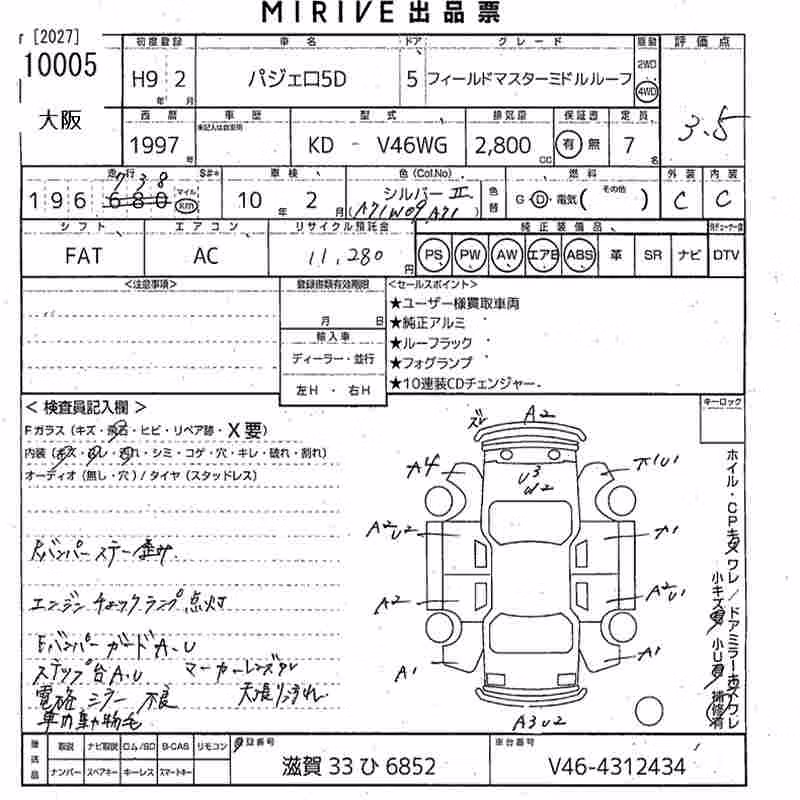 MIRIVE 出品票
[2027]
10005
大阪
初度登録 車名 ドア グレード 駆動 評価点
H9 2 パジェロ5D 5 フィールドマスターミドルルーフ 2WD 4WD
年 月
3.5
西暦 車歴 型式 排気量 保証書 定員
1997 年 未記入は自家用 KD - V46WG 2,800 CC 有・無 7 名
走行 S#* 車検 色(Col.No) 燃料 外装 内装
738
196 680 マイル km 10 年 2 月 シルバーⅡ 色替 G・D・電気( その他 ) C C
(A71W09A71)
シフト エアコン リサイクル預託金 純正装備品
FAT AC 11,280 円 PS PW AW エアB ABS 革 SR ナビ DTV
<注意事項> 登録書類有効期限 <セールスポイント>
月 日
輸入車
ディーラー・並行
左H ・ 右H
★ユーザー様買取車両
★純正アルミ
★ルーフラック
★フォグランプ
★10連装CDチェンジャー
キーロック
< 検査員記入欄 >
Fガラス (キズ・飛石・ヒビ・リペア跡・X要)
内装 (キズ・スレ・汚れ・シミ・コゲ・穴・キレ・破れ・割れ)
オーディオ (無し・穴) / タイヤ (スタッドレス)
Rバンパーステー歪み
エンジンチェックランプ点灯
FバンパーガードA.U
ステップ台A.U マーカーレンズワレ
電格ミラー不良 天張り汚れ
車内動物毛
ズレ A2
A4 U3 W2 ホ1U1
A2U2 A1
A2 A2U1
A1 A1
A3U2
ホイル・CPキズワレ/ドアミラーキズワレ
小キズ有 小U有 補修有
後送品 取説 ナビ取説 ロム/SD B-CAS リモコン 登録番号 車台番号
ナンバー スペアキー キーレス スマートキー 滋賀 33 ひ 6852 V46-4312434